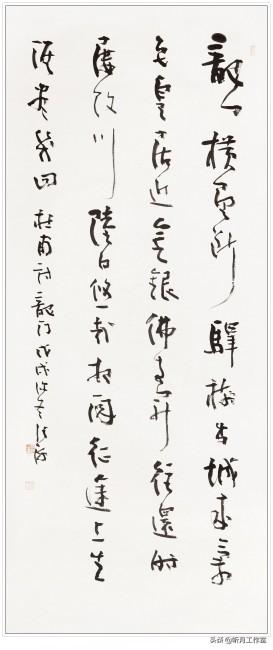 龍門横野断驛樹出城来气
色皇居近金銀佛寺開往還時
屡改川陸日悠哉相閱征途上生
涯盡幾回 杜甫詩龍門戊戌
头条@昕月工作室